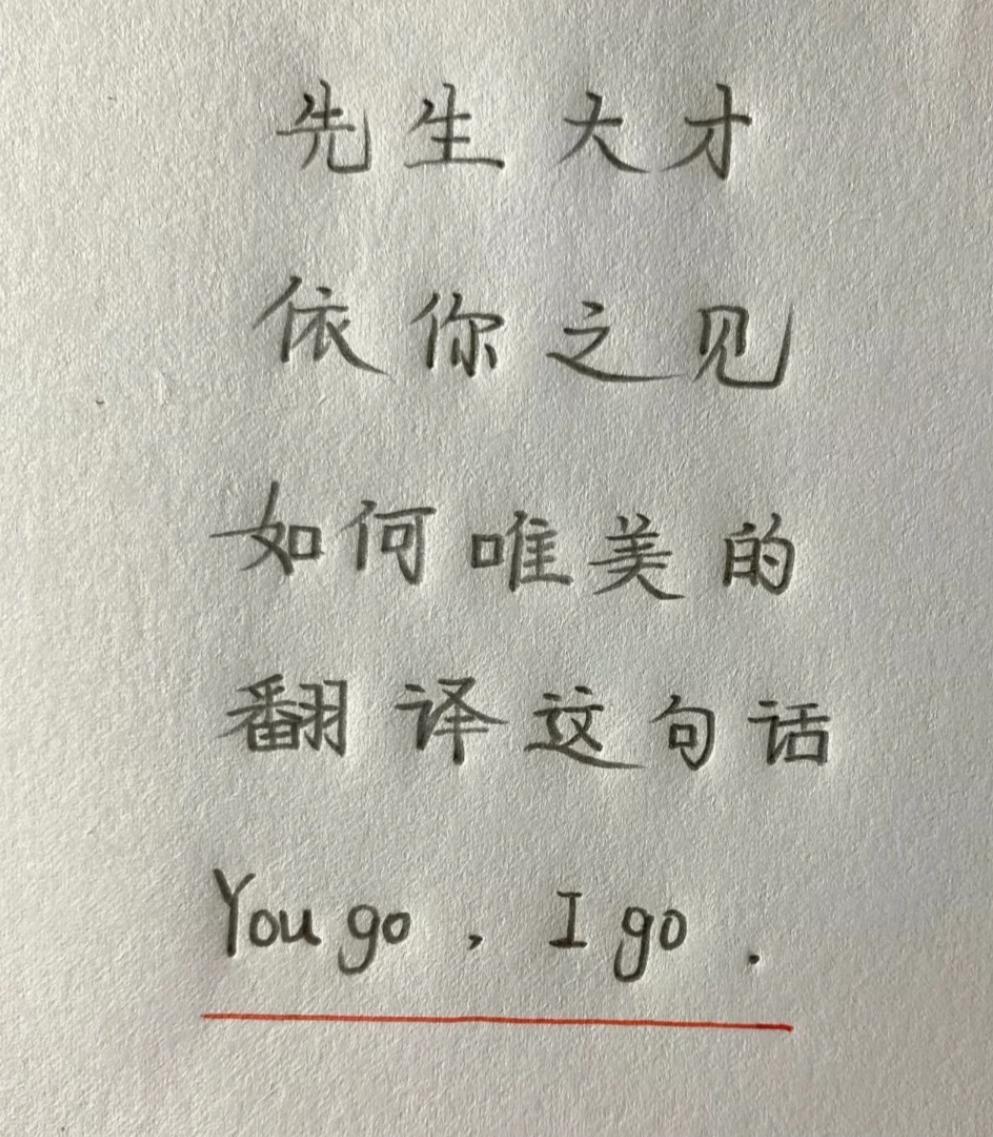 先生大才
依你之见
如何唯美的
翻译这句话
You go, I go.